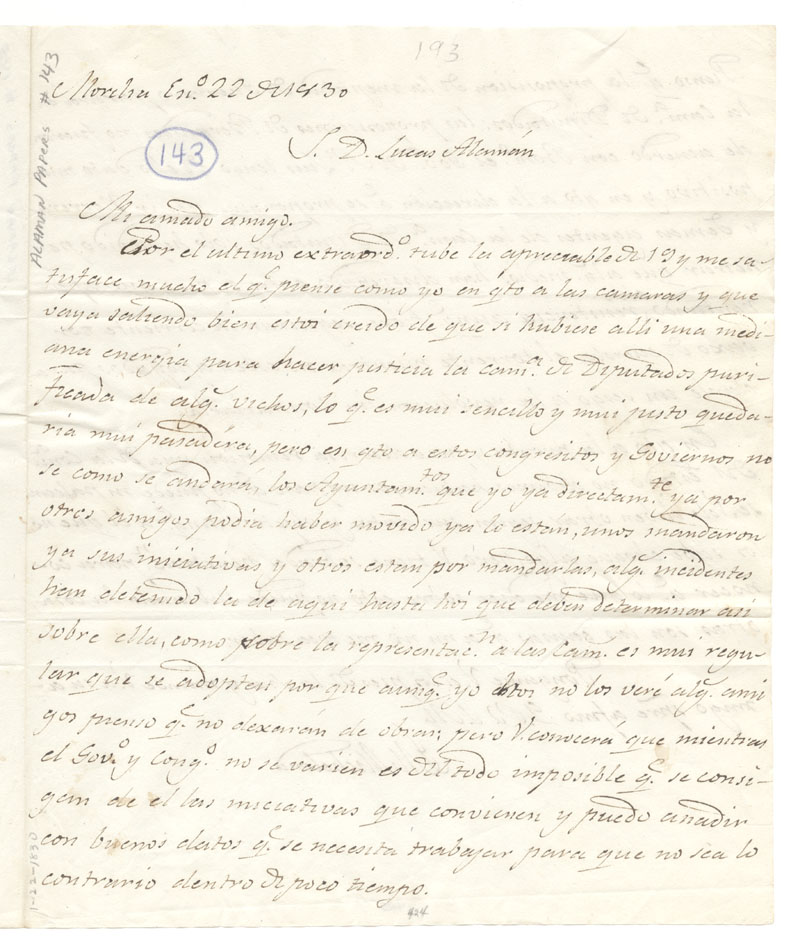 193
Morelia En.º 22 de 1830
143
S. D. Lucas Alamán
ALAMAN PAPERS # 143
Mi amado amigo.
Por el ultimo extraord.º tube la apreciable de 19 y me sa-
tisface mucho el q.e piense como yo en q.to a las camaras y que
vaya saliendo bien estoi creido de que si hubiese alli una medi-
ana energia para hacer justicia la cam.a de Diputados puri-
ficada de alg.s vichos, lo q.e es mui sencillo y mui justo queda-
ria mui pasadera, pero en q.to a estos congresitos y Goviernos no
se como se andará, los Ayuntam.tos que yo ya directam.te ya por
otros amigos podia haber movido ya lo estan, unos mandaron
ya sus iniciativas y otros estan por mandarlas, alg.s incidentes
han detenido la de aqui hasta hoi que deben determinar asi
sobre ella, como sobre la representac.n a las Cam.s es mui regu-
lar que se adopten por que aunq.e yo no los veré alg.s ami
gos pienso q.e no dexaran de obrar; pero V. conocerá que mientras
el Gov.º y Cong.º no se varien es del todo imposible q.e se consi-
gan de el las iniciativas que convienen y puedo añadir
con buenos datos q.e se necesita trabajar para que no sea lo
contrario dentro de poco tiempo.
1-22-1830
424